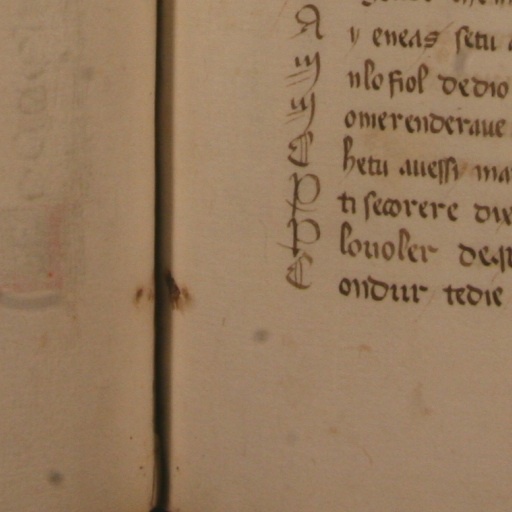 A y eneas setu
E nlo fiol dedio
E omerenderaue
C hetu auessi ma
P ti secorere die
P lo uoler deq
C ondur tedie